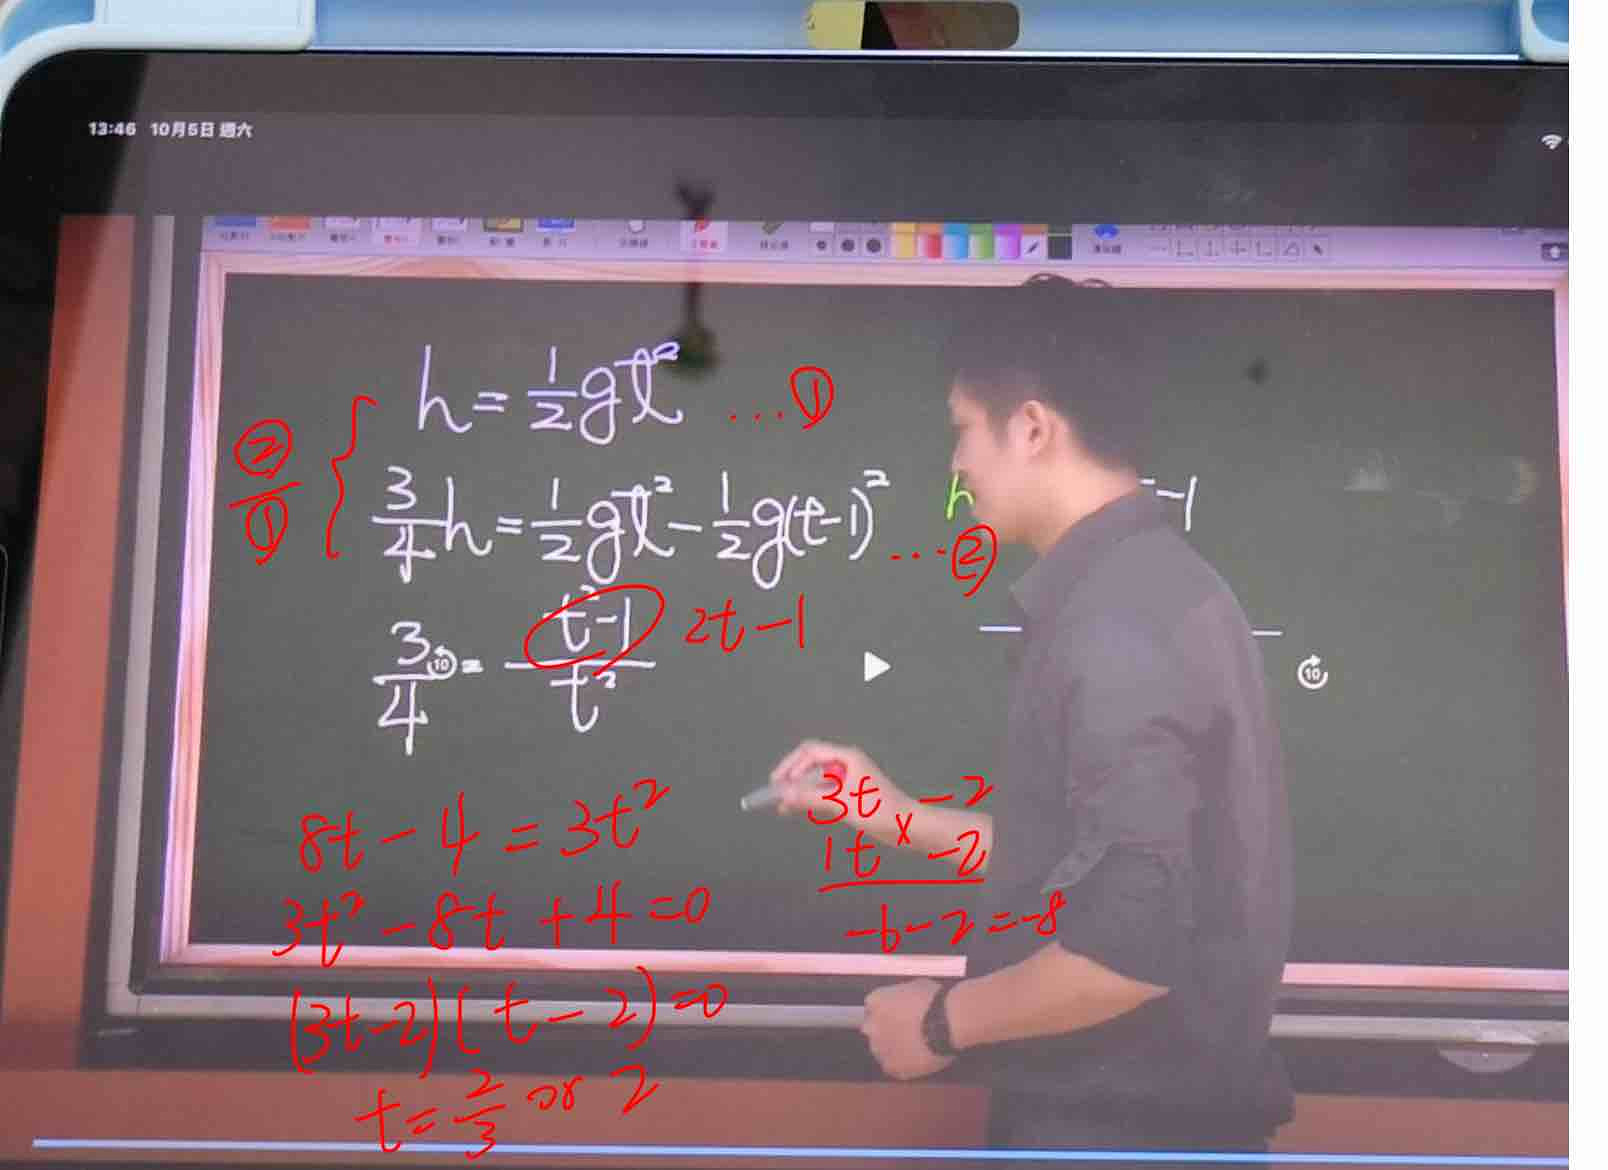 13:46 10月5日 週六
h = 1/2 gt² ...①
②/① { 3/4 h = 1/2 gt² - 1/2 g(t-1)² ...②
h
-1
3/4 = t²-1 / t² 2t-1
10
10
8t - 4 = 3t²
3t² - 8t + 4 = 0
(3t-2)(t-2)=0
t = 2/3 or 2
3t -2
×
1t -2
-6-2=-8